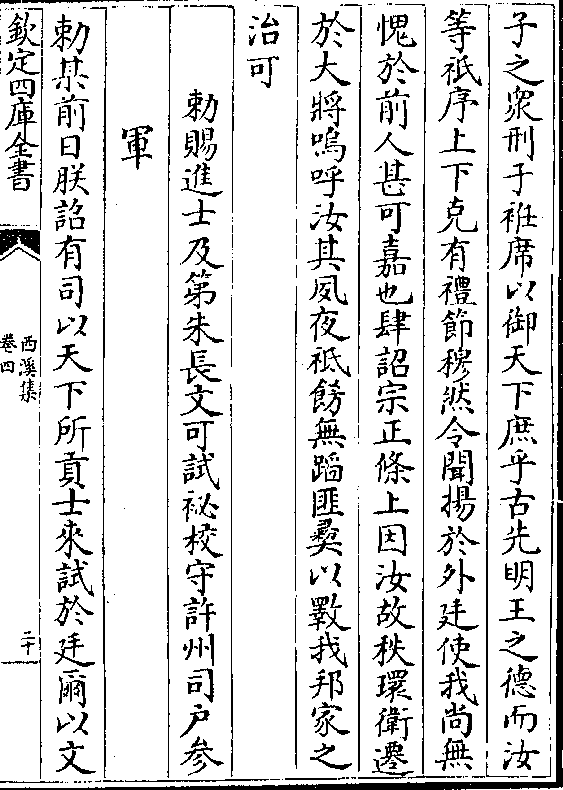 子之衆刑于袵席以御天下庶乎古先明王之德而汝
等祇序上下克有禮節穆然令聞揚於外廷使我尚無
愧於前人甚可嘉也肆詔宗正條上因汝故秩環衛遷
於大將嗚呼汝其夙夜祇飭無蹈匪彛以斁我邦家之
治可
勅賜進士及第朱長文可試祕校守許州司戸参
軍
勅某前日朕詔有司以天下所貢士來試於廷爾以文
欽定四庫全書
西溪集
卷四
二十